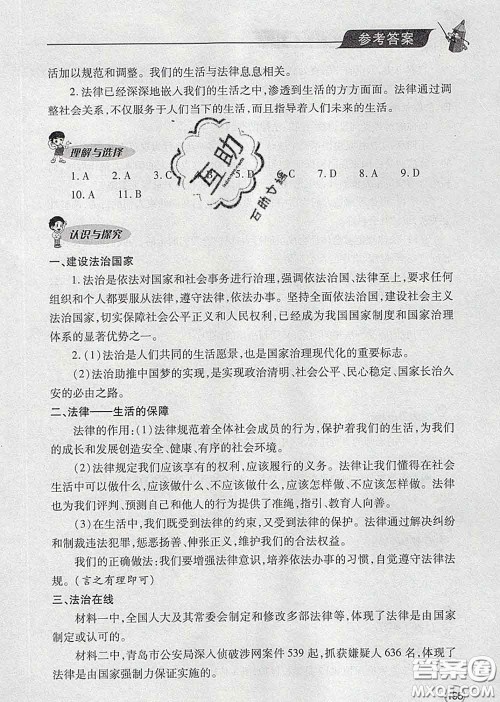 参考答案
活加以规范和调整。我们的生活与法律息息相关。
2. 法律已经深深地嵌入我们的生活之中，渗透到生活的方方面面。法律通过调
整社会关系，不仅服务于人们当下的生活，而且指导着人们未来的生活。
理解与选择
1. A 2. A 3. C 5. C 7. D 8. A 9. D
10. A 11. B
互助
互助文编
认识与探究
一、建设法治国家
1. 法治是依法对国家和社会事务进行治理，强调依法治国、法律至上，要求任何
组织和个人都要服从法律，遵守法律，依法办事。坚持全面依法治国，建设社会主义
法治国家，切实保障社会公平正义和人民权利，已经成为我国国家制度和国家治理
体系的显著优势之一。
2. (1)法治是人们共同的生活愿景，也是国家治理现代化的重要标志。
(2)法治助推中国梦的实现，是实现政治清明、社会公平、民心稳定、国家长治久
安的必由之路。
二、法律——生活的保障
法律的作用：(1)法律规范着全体社会成员的行为，保护着我们的生活，为我们
的成长和发展创造安全、健康、有序的社会环境。
(2)法律规定我们应该享有的权利，应该履行的义务。法律让我们懂得在社会
生活中可以做什么，应该做什么、不应该做什么，应该怎样做、不应该怎样做。法律
也为我们评判、预测自己和他人的行为提供了准绳，指引、教育人向善。
(3)在生活中，我们既受到法律的约束，又受到法律的保护。法律通过解决纠纷
和制裁违法犯罪，惩恶扬善、伸张正义，维护我们的合法权益。
我们的正确做法：我们要增强法律意识，培养依法办事的习惯，自觉遵守法律法
规。(言之有理即可)
三、法治在线
材料一中，全国人大及其常委会制定和修改多部法律等，体现了法律是由国家
制定或认可的。
材料二中，青岛市公安局深入侦破涉网案件 539 起，抓获嫌疑人 636 名，体现了
法律是由国家强制力保证实施的。
答案圈
MXQE.COM